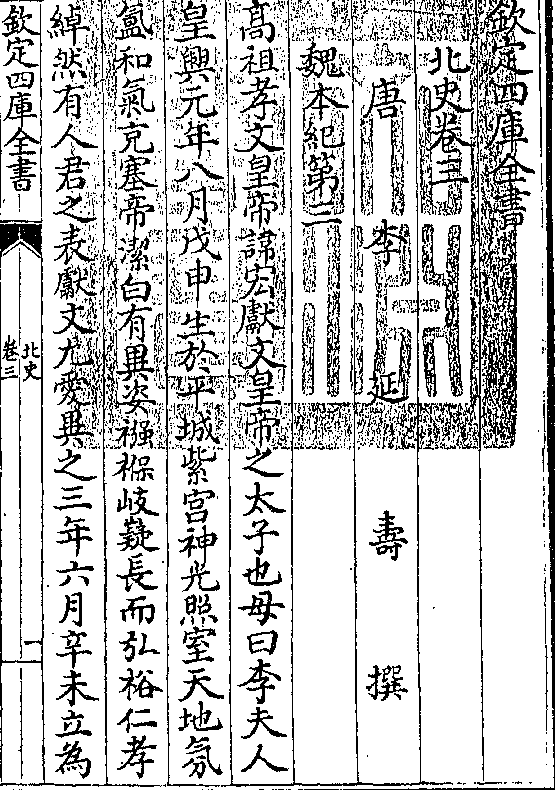 欽定四庫全書
北史卷三
唐李延壽撰
魏本紀第三
高祖孝文皇帝諱宏獻文皇帝之太子也母曰李夫人
皇興元年八月戊申生於平城紫宮神光照室天地氛
氳和氣充塞帝潔白有異姿襁褓岐嶷長而弘裕仁孝
綽然有人君之表獻文尤愛異之三年六月辛未立為
欽定四庫全書
北史
卷三
一